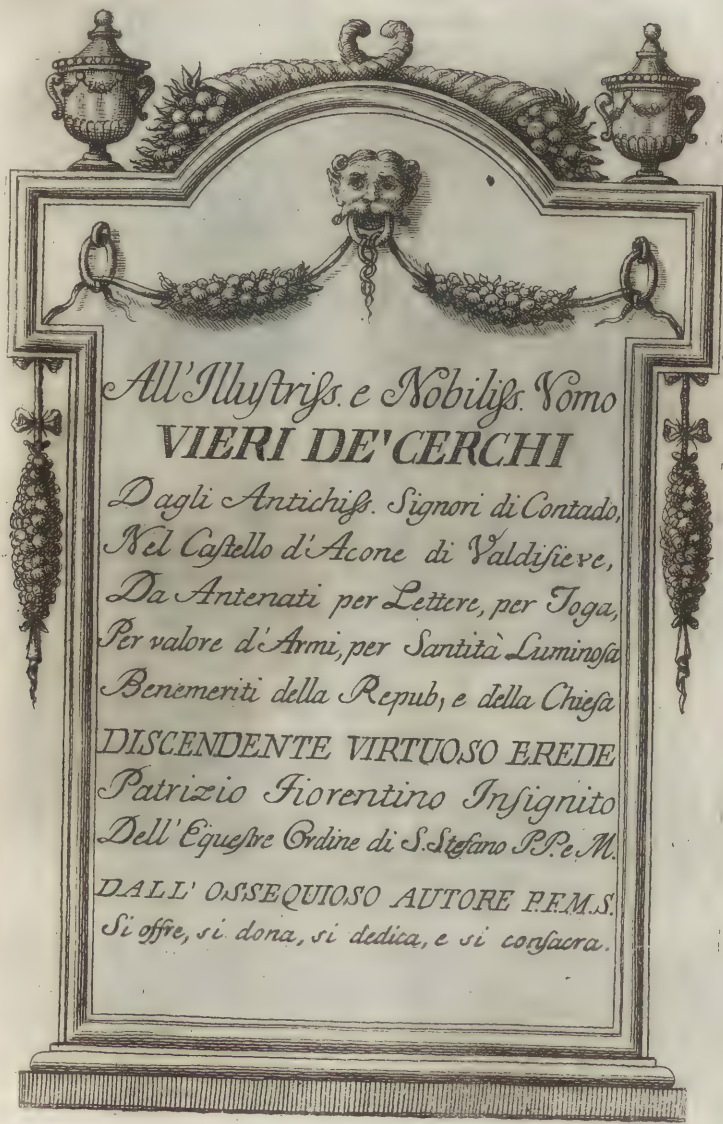 All'Illuſtriſs. e Nobiliſs. Vomo
VIERI DE' CERCHI
Dagli Antichiſs. Signori di Contado,
Nel Caſtello d'Acone di Valdiſieve,
Da Antenati per Lettere, per Toga,
Per valore d'Armi, per Santità Luminoſa
Benemeriti della Repub, e della Chieſa
DISCENDENTE VIRTUOSO EREDE
Patrizio Fiorentino Inſignito
Dell'Equeſtre Ordine di S. Stefano P.P. e M.
DALL' OSSEQUIOSO AUTORE P.F.M.S.
Si offre, si dona, si dedica, e si conſacra.